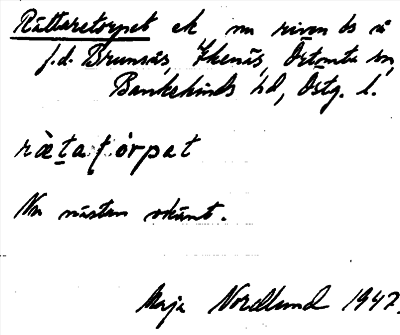 Rättaretorpet ek nu riven bs å
f.d. Brunnsäs, Ekenäs, Örtomta sn,
Bankekinds hd, Östg. l.
ràt̲atórpat
Nu nästan okänt.
Maja Nordlund 1947.